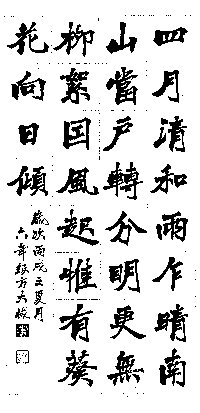 四月清和雨乍晴南
山當戶轉分明更無
柳絮因風起惟有葵
花向日傾
歲次丙戌夏月
六年級方